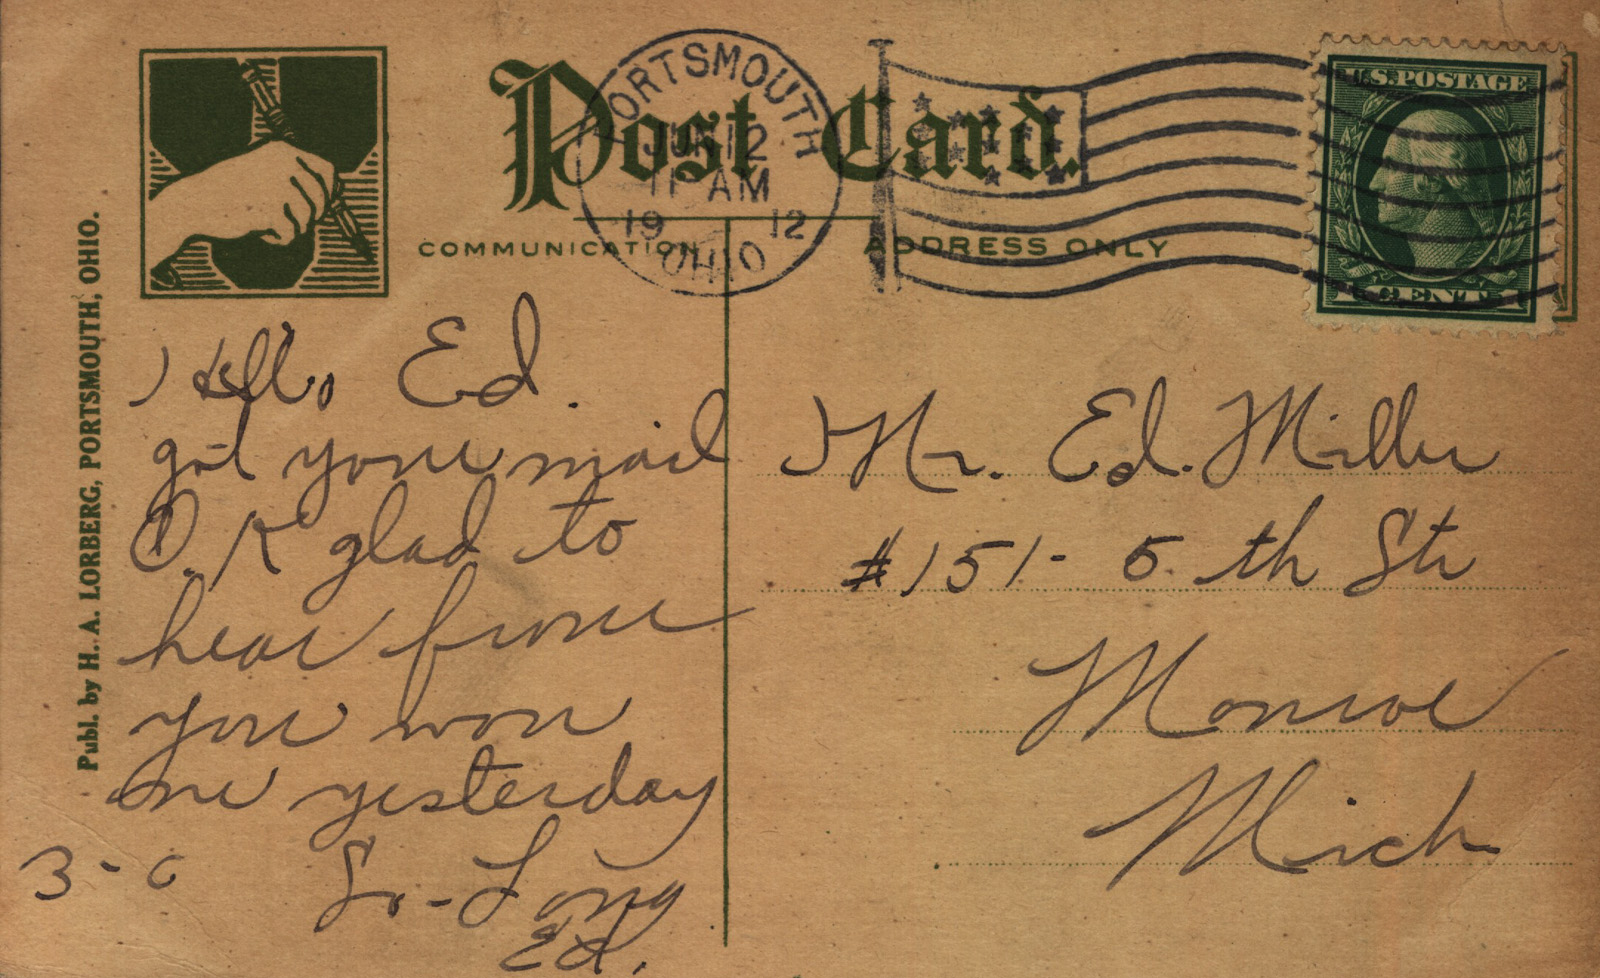 Post Card.
PORTSMOUTH
JUN 12
11 AM
19 12
OHIO
U.S. POSTAGE
1 CENT 1
COMMUNICATION
ADDRESS ONLY
Publ. by H. A. LORBERG, PORTSMOUTH, OHIO.
Hello Ed.
got your mail
O.K glad to
hear from
you won
one yesterday
3-0 So-Long
Ed.
Mr. Ed. Miller
#151- 5th Str
Monroe
Mich